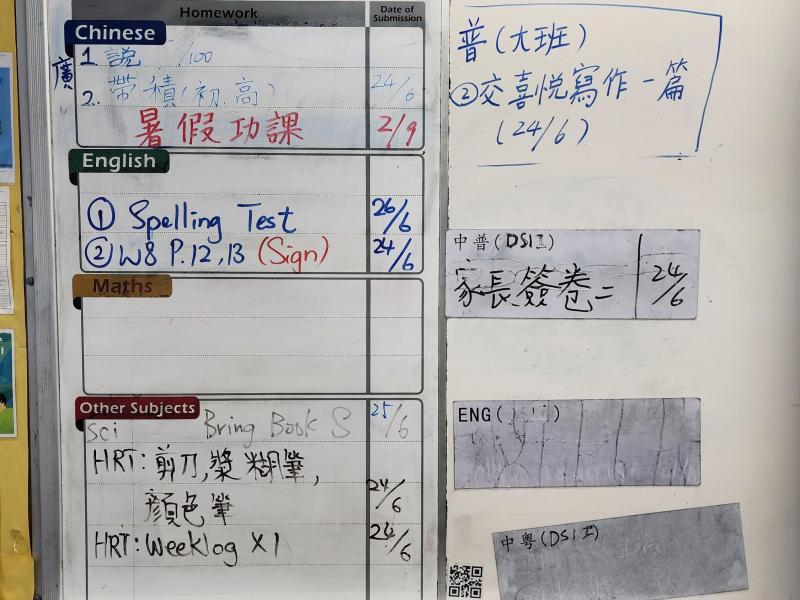 Homework
Date of Submission
Chinese
廣
1. 說 /100
2. 帶積(初.高) 24/6
暑假功課 2/9
English
① Spelling Test 26/6
② WB P.12,13 (Sign) 24/6
Maths
Other Subjects
sci Bring Book S 25/6
HRT: 剪刀,漿糊筆,
顏色筆 24/6
HRT: Weeklog X1 24/6
普(大班)
②交喜悅寫作一篇
(24/6)
中普(DSII)
家長簽卷二 24/6
ENG(
中粵(DSII)